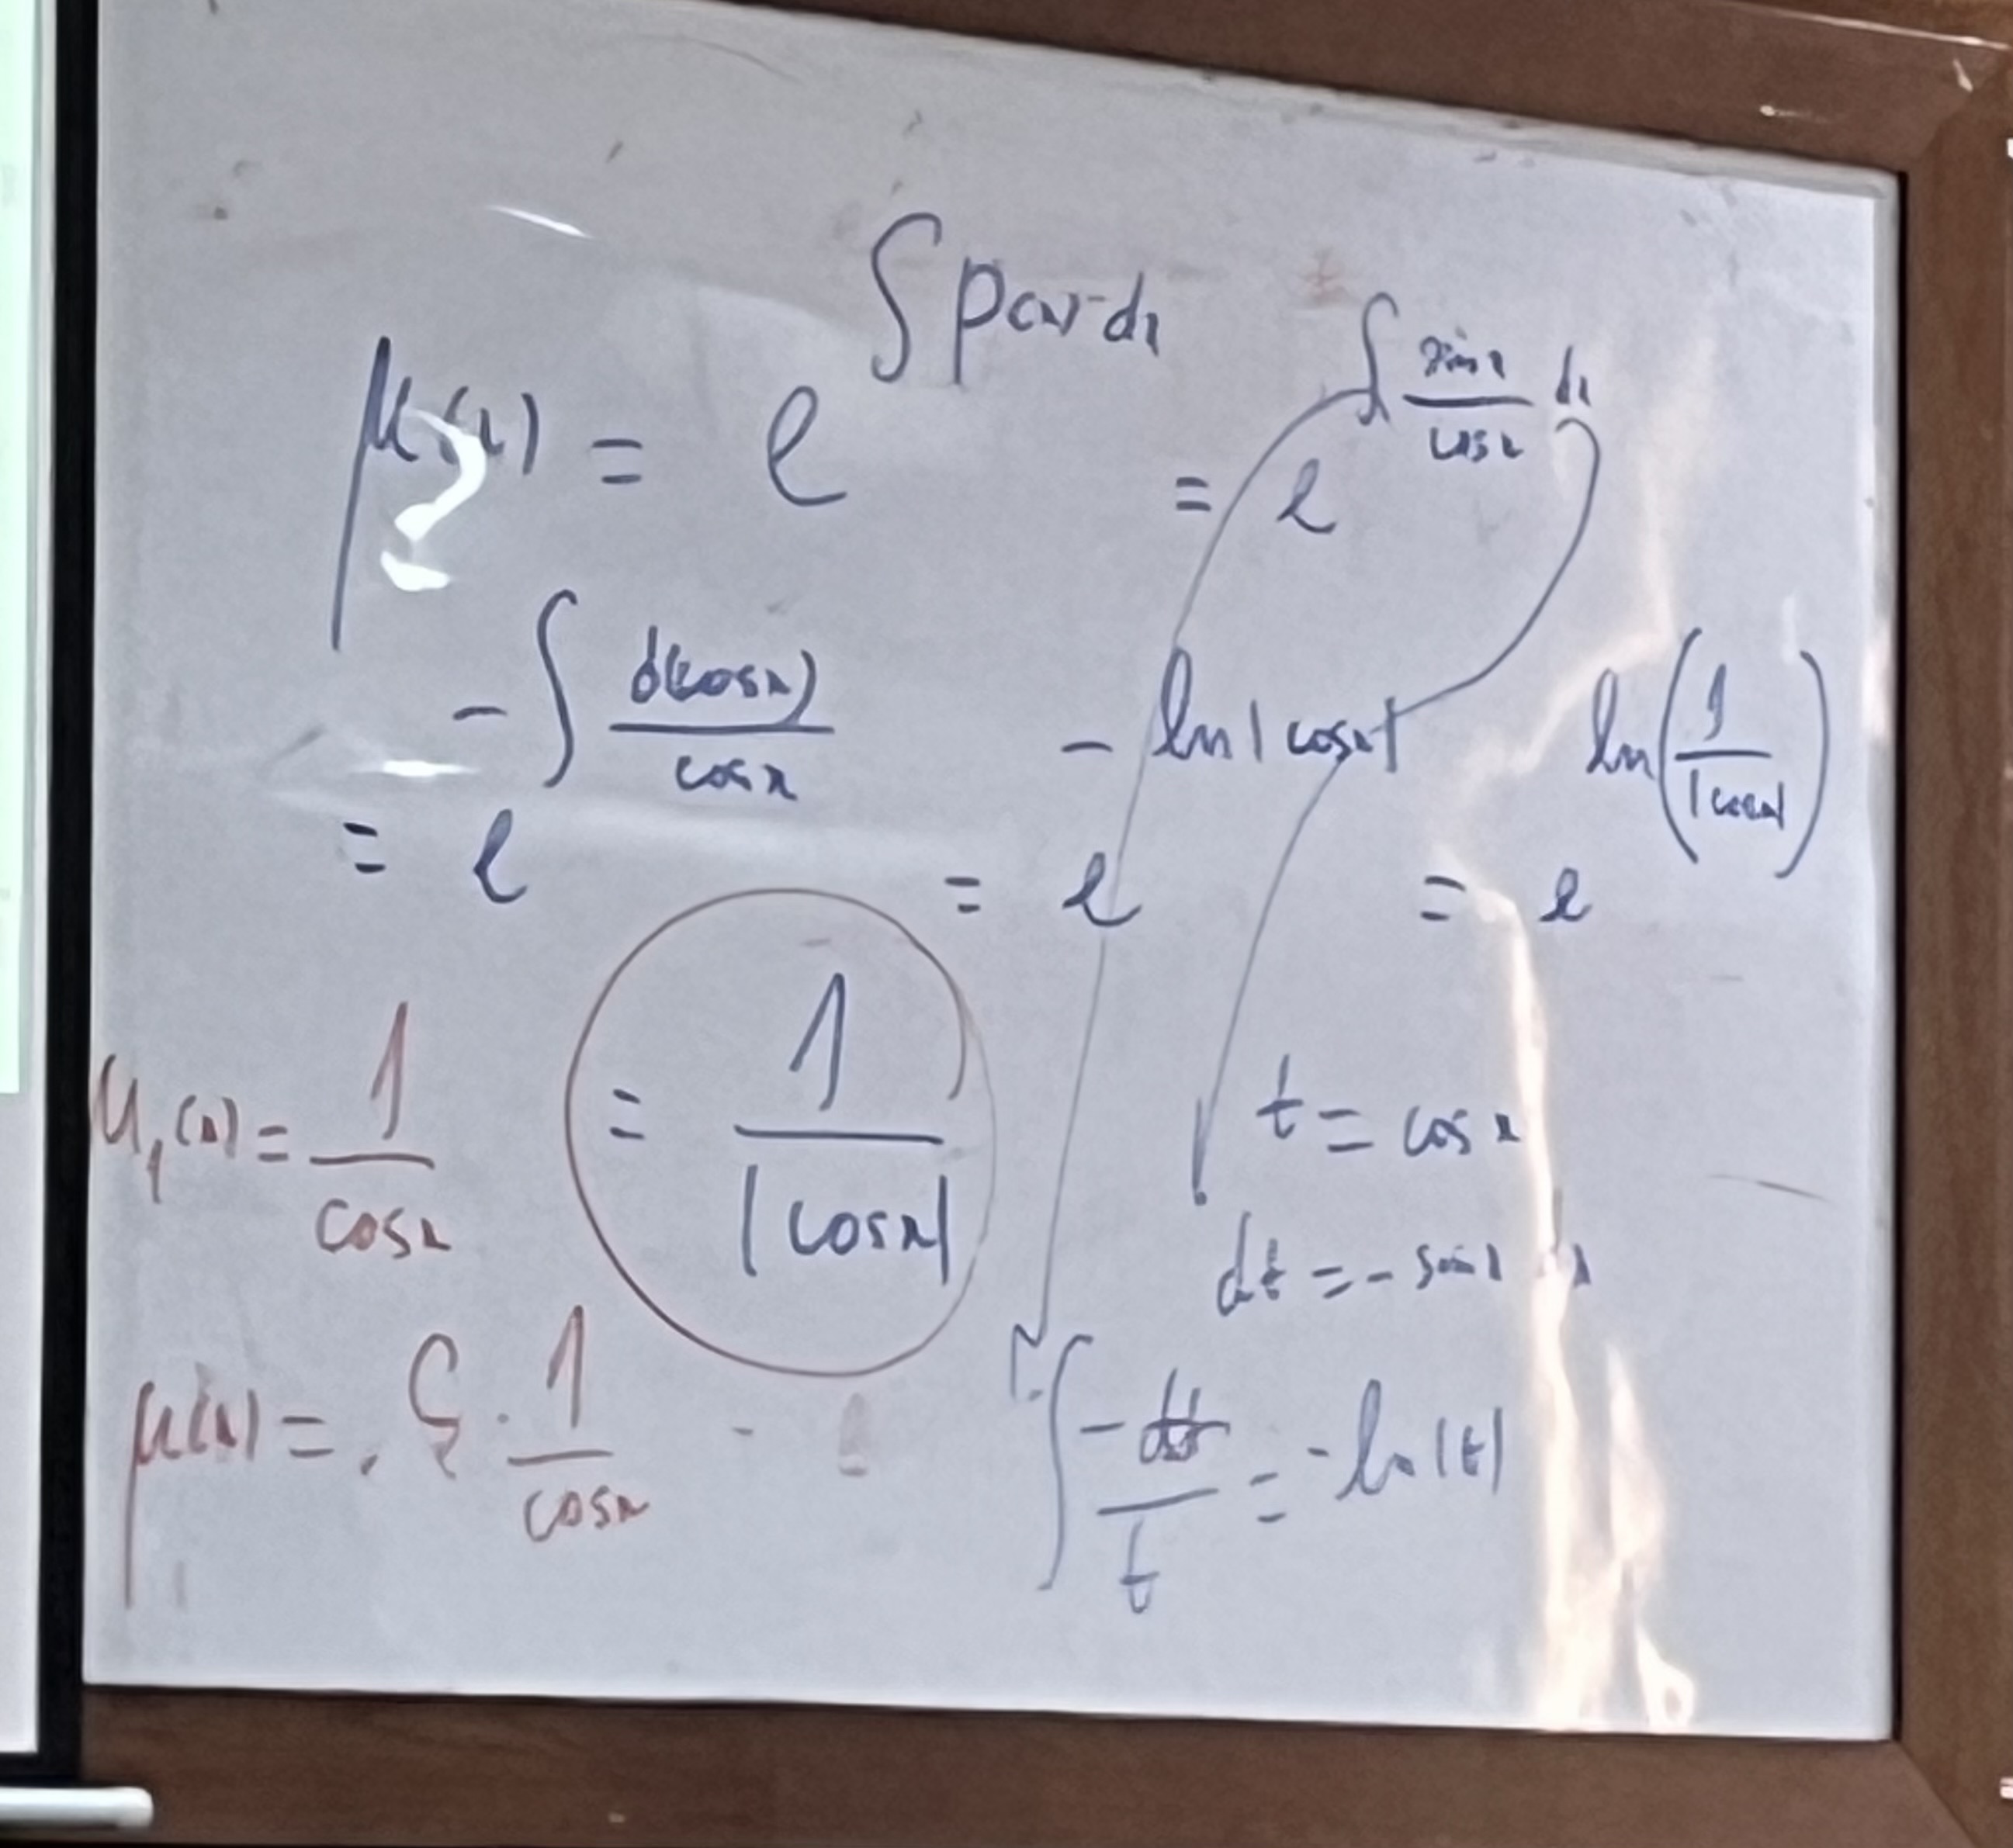 μ(x) = e^{∫ p(x) dx} = e^{∫ \frac{sin x}{cos x} dx}
= e^{-∫ \frac{d(cos x)}{cos x}} = e^{-ln|cos x|} = e^{ln(\frac{1}{|cos x|})}
= \frac{1}{|cos x|}
μ_1(x) = \frac{1}{cos x}
t = cos x
dt = - sin x dx
μ(x) = C · \frac{1}{cos x}
∫ \frac{-dt}{t} = -ln|t|